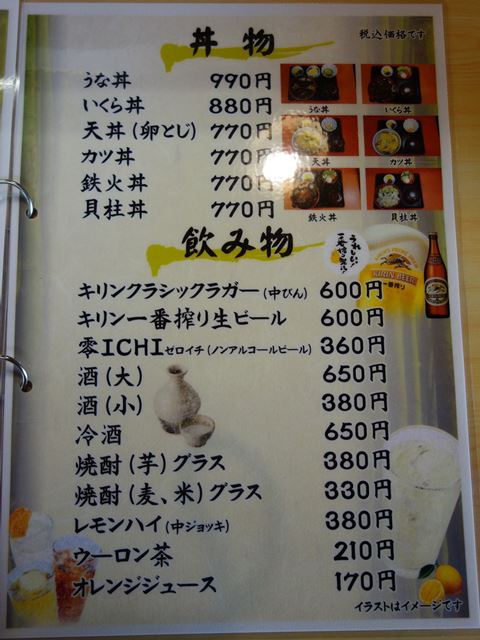 丼物
税込価格です
うな丼 990円
いくら丼 880円
天丼(卵とじ) 770円
カツ丼 770円
鉄火丼 770円
貝柱丼 770円
うな丼 いくら丼
天丼 カツ丼
鉄火丼 貝柱丼
飲み物
キリンクラシックラガー(中びん) 600円
キリン一番搾り生ビール 600円
零ICHIゼロイチ(ノンアルコールビール) 360円
酒(大) 650円
酒(小) 380円
冷酒 650円
焼酎(芋)グラス 380円
焼酎(麦、米)グラス 330円
レモンハイ(中ジョッキ) 380円
ウーロン茶 210円
オレンジジュース 170円
KIRIN BEER
一番搾り
イラストはイメージです